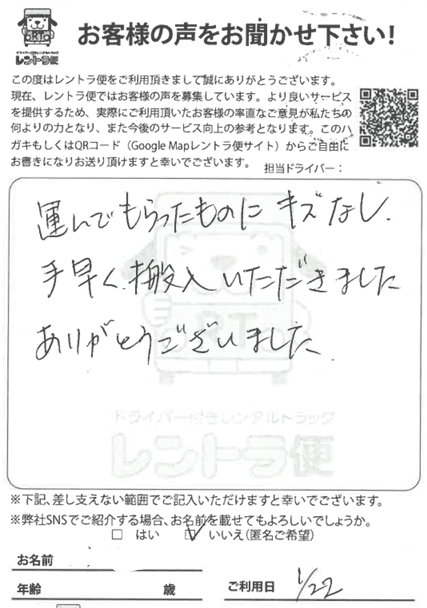 お客様の声をお聞かせ下さい!
ドライバー付きレンタルトラック
レントラ便
この度はレントラ便をご利用頂きまして誠にありがとうございます。
現在、レントラ便ではお客様の声を募集しています。より良いサービス
を提供するため、実際にご利用頂いたお客様の率直なご意見が私たちの
何よりの力となり、また今後のサービス向上の参考となります。このハ
ガキもしくはQRコード（Google Mapレントラ便サイト）からご自由に
お書きになりお送り頂けますと幸いでございます。
担当ドライバー：
運んでもらったものにキズなし、
手早く、搬入いただきました
ありがとうございました
RT
ドライバー付きレンタルトラック
レントラ便
※下記、差し支えない範囲でご記入いただけますと幸いでございます。
※弊社SNSでご紹介する場合、お名前を載せてもよろしいでしょうか。
□ はい ☑ いいえ(匿名ご希望)
お名前
年齢 歳 ご利用日 1/22